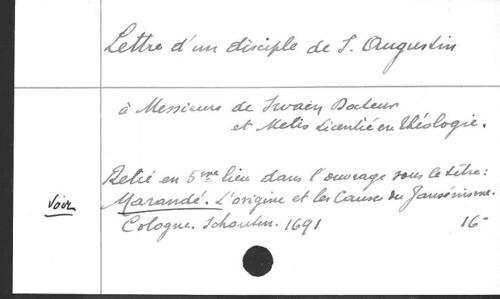 Lettre d'un disciple de S. Augustin
à Messieurs de Swaen Docteur
et Melis Licentié en théologie.
Relié en 5me lieu dans l'ouvrage sous le titre:
Voir Marandé. L'origine et les Causes du Jansénisme.
Cologne. Schouten. 1691 16-